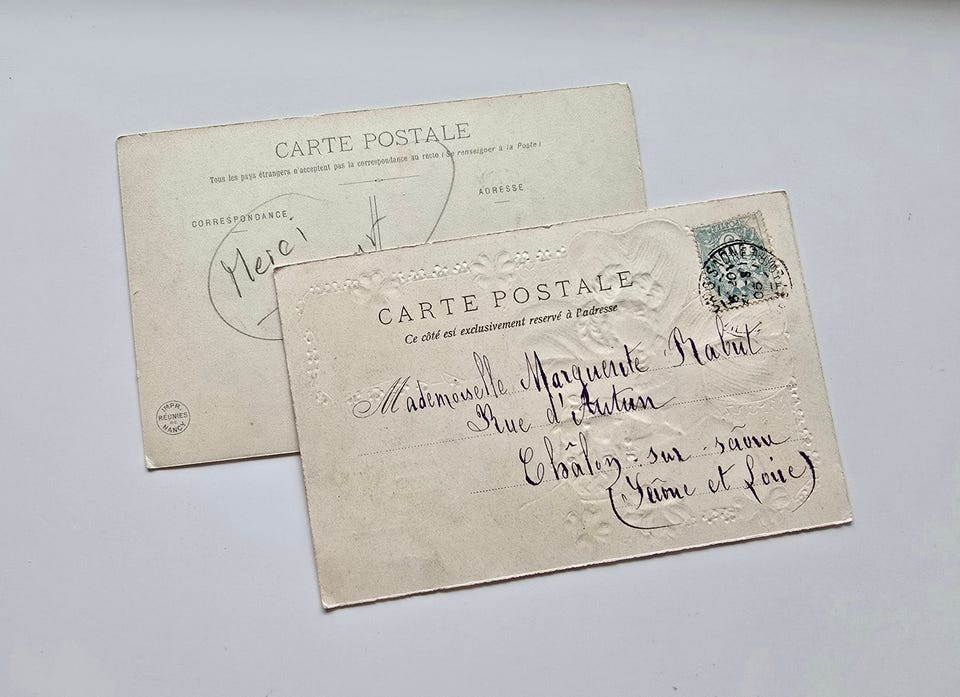 CARTE POSTALE
Tous les pays étrangers n'acceptent pas la correspondance au recto (Se renseigner à la Poste)
CORRESPONDANCE
ADRESSE
Merci
IMPR.
RÉUNIES
DE
NANCY
CARTE POSTALE
Ce côté est exclusivement reservé à l'adresse
Mademoiselle Marguerite Rabut
Rue d'Autun
Châlon-sur-saône
(Saône et Loire)